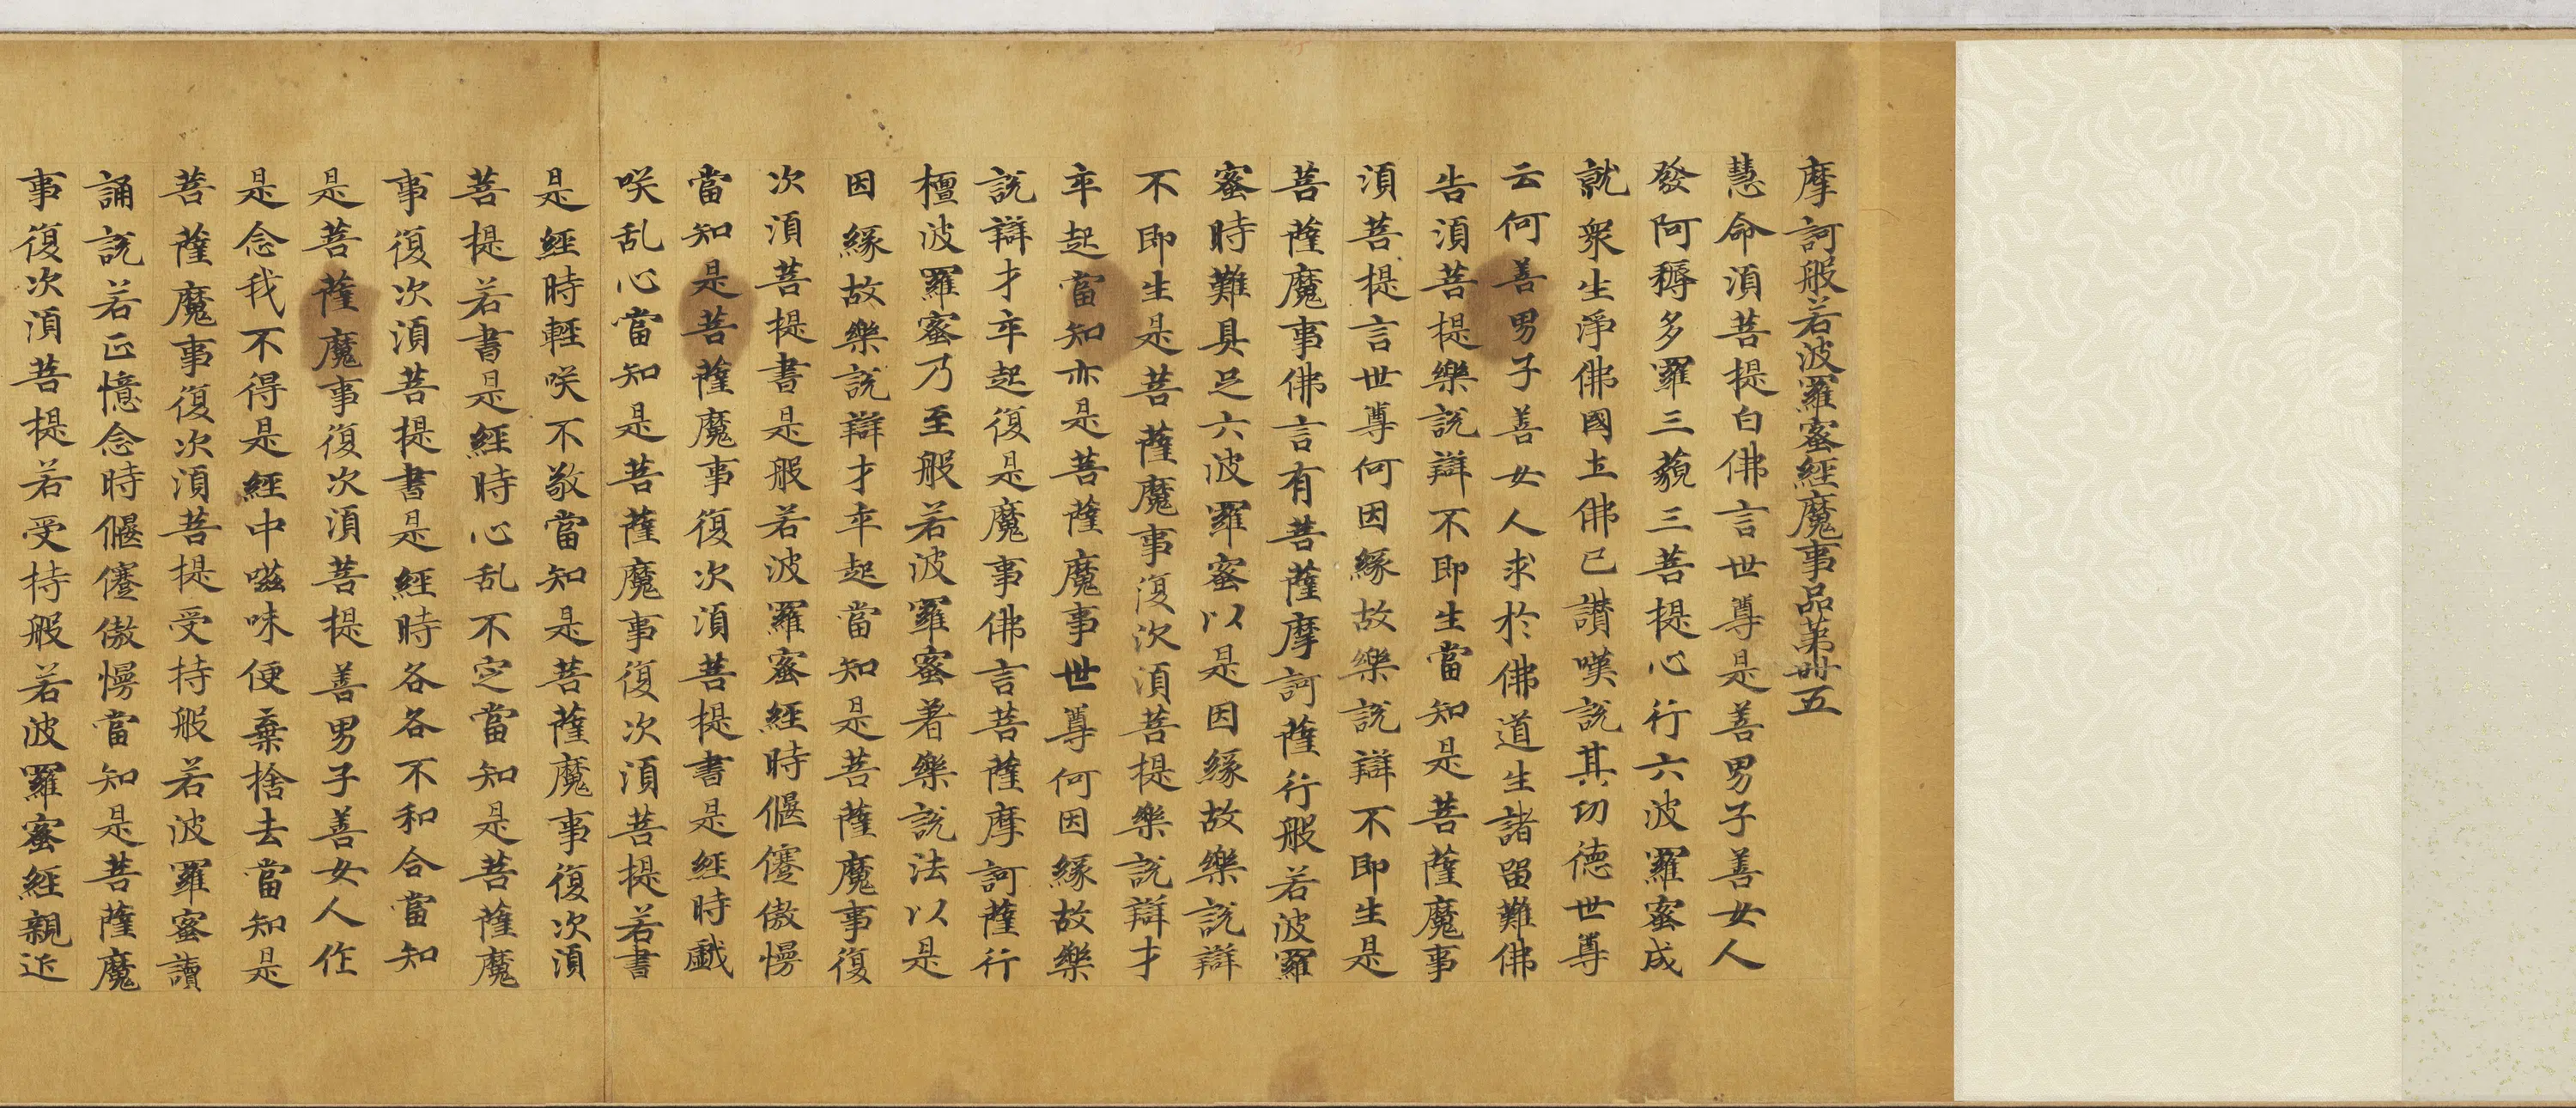 摩訶般若波羅蜜經魔事品第卌五
慧命湏菩提白佛言世尊是善男子善女人
發阿耨多羅三藐三菩提心行六波羅蜜成
就衆生淨佛國土佛已讚嘆説其功德世尊
云何善男子善女人求於佛道生諸留難佛
告湏菩提樂説辯不即生當知是菩薩魔事
湏菩提言世尊何因緣故樂説辯不即生是
菩薩魔事佛言有菩薩摩訶薩行般若波羅
蜜時難具足六波羅蜜以是因緣故樂説辯
不即生是菩薩魔事復次湏菩提樂説辯才
卒起當知亦是菩薩魔事世尊何因緣故樂
説辯才卒起復是魔事佛言菩薩摩訶薩行
檀波羅蜜乃至般若波羅蜜著樂説法以是
因緣故樂説辯才卒起當知是菩薩魔事復
次湏菩提書是般若波羅蜜經時偃蹇傲慢
當知是菩薩魔事復次湏菩提書是經時戲
咲乱心當知是菩薩魔事復次湏菩提若書
是經時輕咲不敬當知是菩薩魔事復次湏
菩提若書是經時心乱不定當知是菩薩魔
事復次湏菩提書是經時各各不和合當知
是菩薩魔事復次湏菩提善男子善女人作
是念我不得是經中嗞味便棄捨去當知是
菩薩魔事復次湏菩提受持般若波羅蜜讀
誦説若正憶念時偃蹇傲慢當知是菩薩魔
事復次湏菩提若受持般若波羅蜜經親近